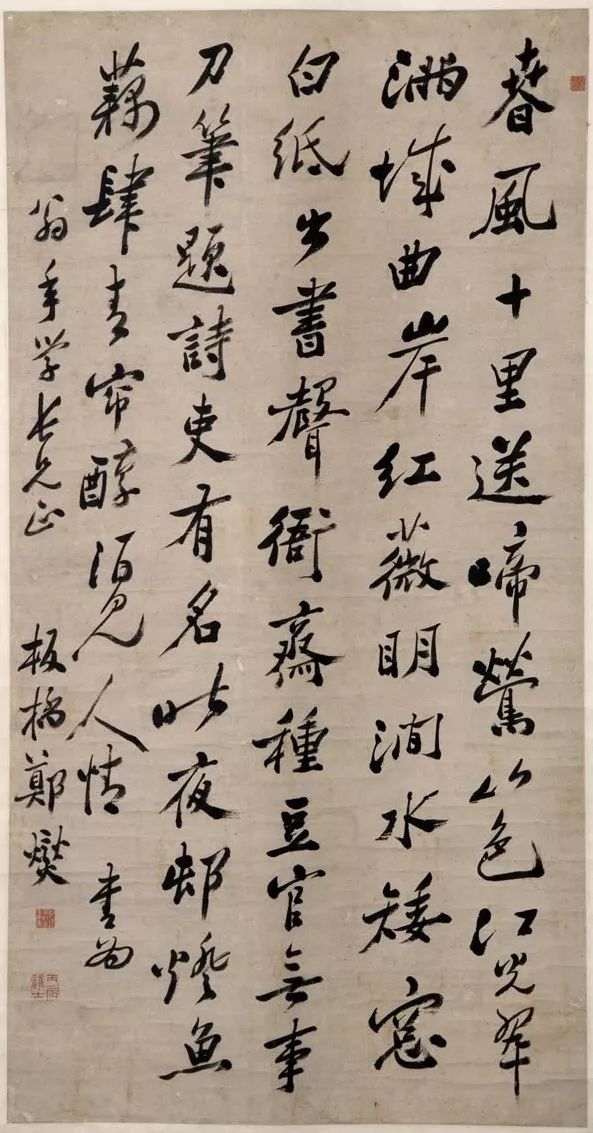 春風十里送啼鶯山色江光翠
滿城曲岸紅薇明澗水矮窗
白紙出書聲衙齋種豆官無事
刀筆題詩吏有名昨夜邨燈魚
藕肆青帘醇酒見人情 書為
翁年学長兄正 板橋鄭燮